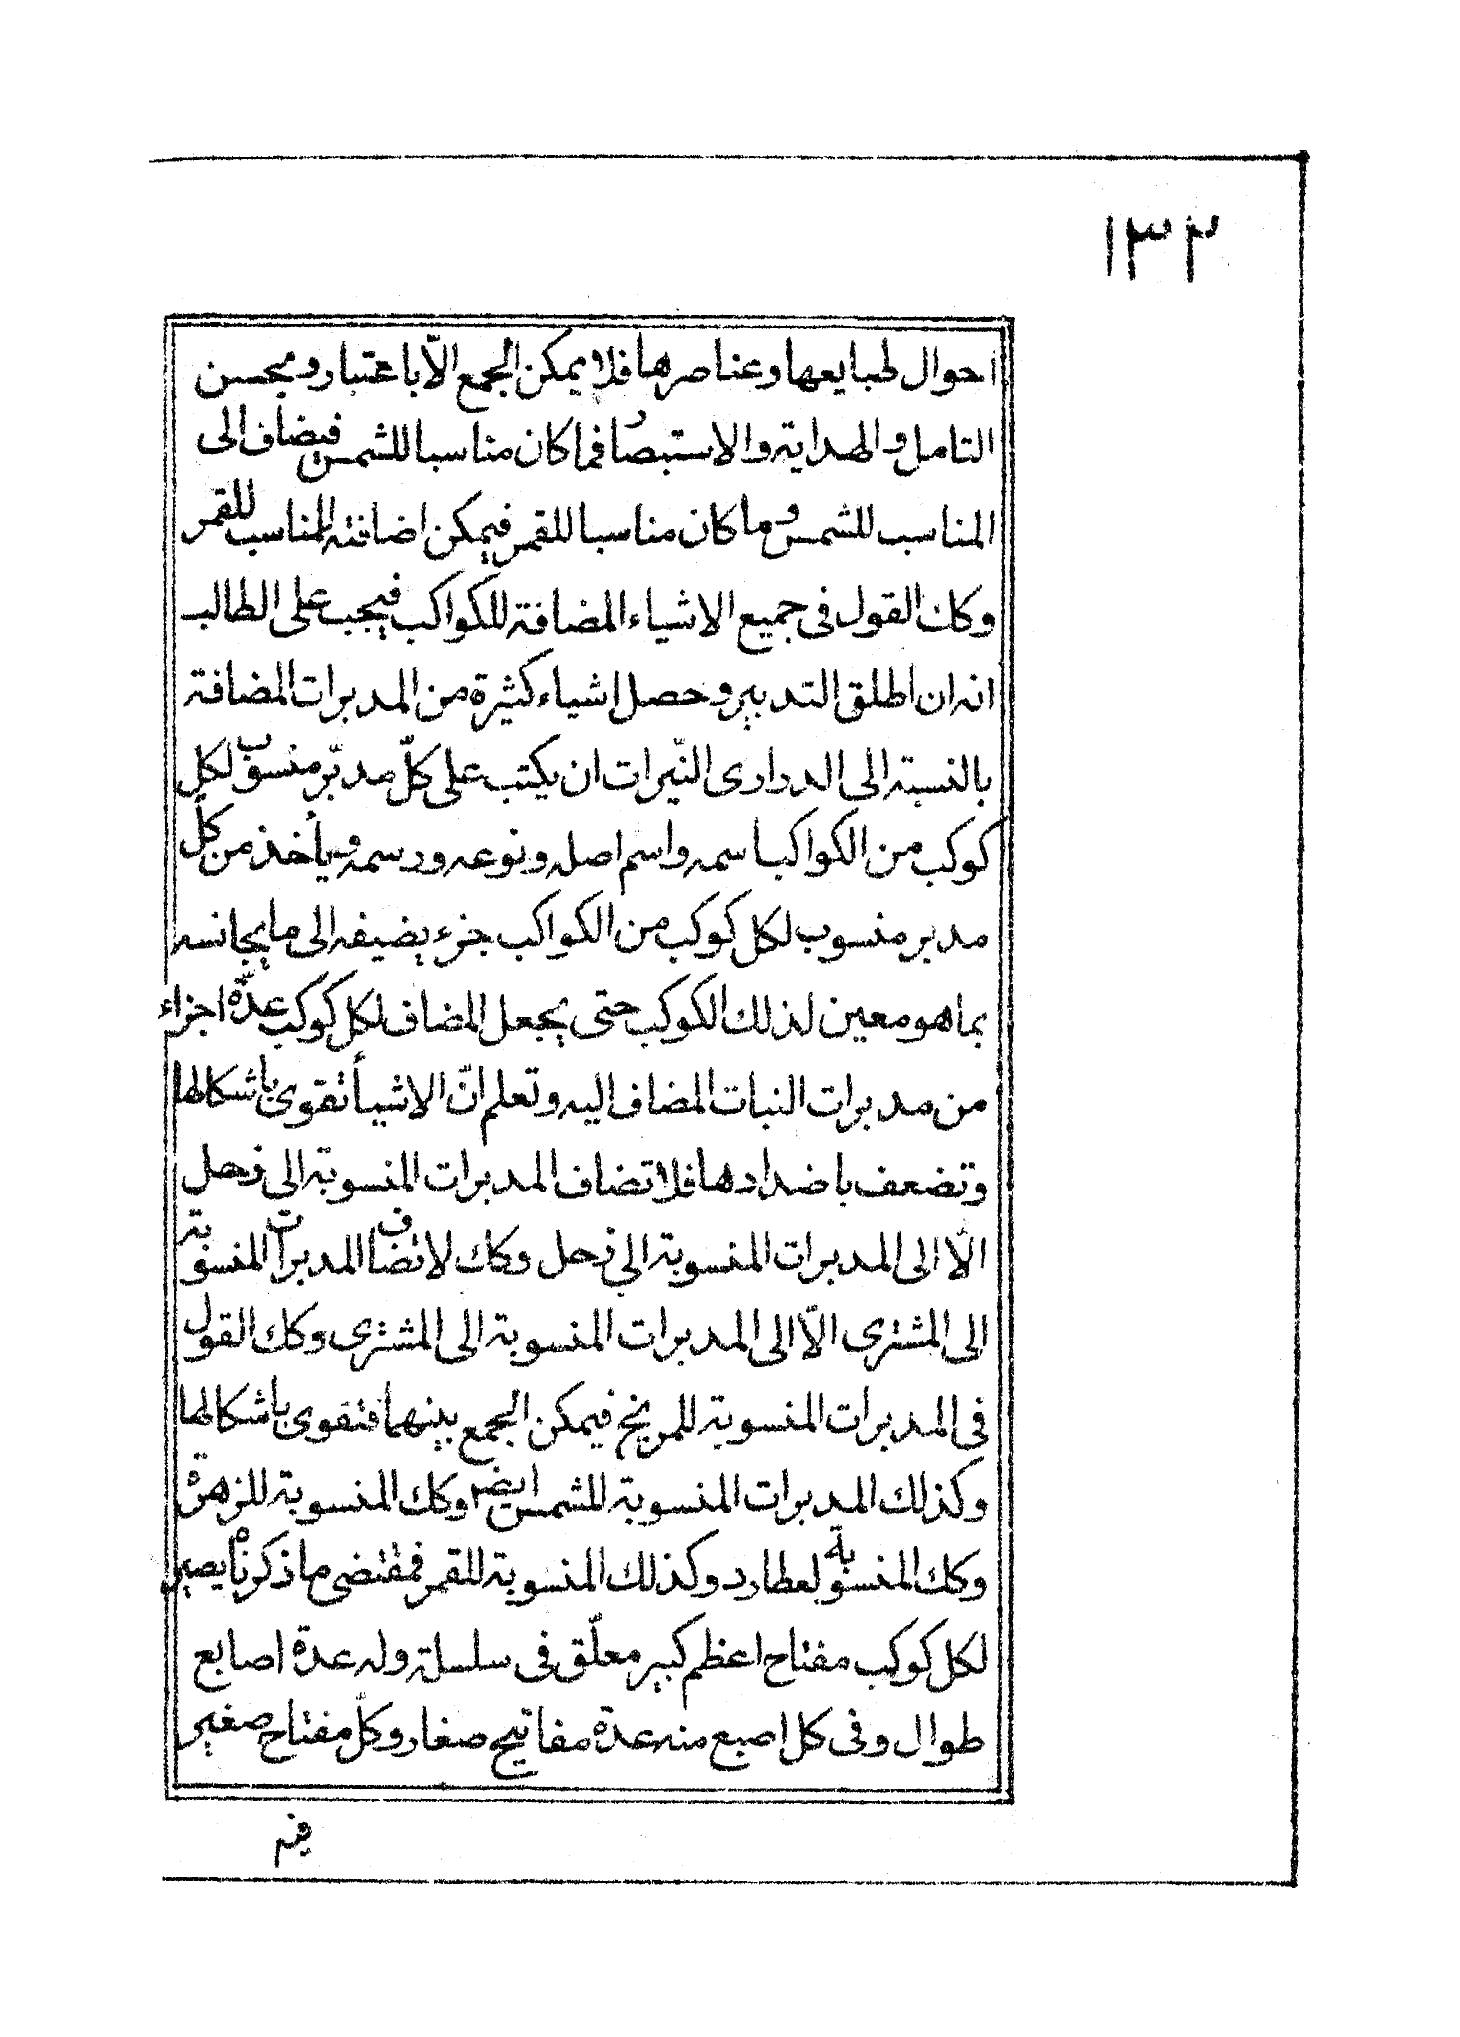 ١٣٢
احوال طبايعها وعناصرها فلا يمكن الجمع الّا باعتبار ومحسن
التامل والهداية والاستبصار فما كان مناسبا للشمس فيضاف الى
المناسب للشمس وما كان مناسبا للقمر فيمكن اضافته المناسب للقمر
وكك القول فى جميع الاشياء المضافة للكواكب فيجب على الطالب
انه ان اطلق التدبير وحصل اشياء كثيرة من المدبرات المضافة
بالنسبة الى الدرارى النّيرات ان يكتب على كلّ مدبّر منسوب لكل
كوكب من الكواكب اسمه واسم اصله ونوعه ورسمه ويأخذ من كلّ
مدبر منسوب لكل كوكب من الكواكب جزء يضيفه الى ما يجانسه
بما هو معين لذلك الكوكب حتى يجعل المضاف لكل كوكب عدّة اجزاء
من مدبرات النبات المضاف اليه وتعلم انّ الاشيأ تقوى باشكالها
وتضعف باضدادها فلا تضاف المدبرات المنسوبة الى زحل
الّا الى المدبرات المنسوبة الى زحل وكك لا تضاف المدبرات المنسوبة
الى المشترى الّا الى المدبرات المنسوبة الى المشترى وكك القول
فى المدبرات المنسوبة للمريخ فيمكن الجمع بينهما فتقوى باشكالها
وكذلك المدبرات المنسوبة للشمس ايضر وكك المنسوبة للزهرة
وكك المنسوبة لعطارد وكذلك المنسوبة للقمر فمقتضى ما ذكرناه يصير
لكل كوكب مفتاح اعظم كبير معلّق فى سلسلة وله عدة اصابع
طوال وفى كل اصبع منه عدة مفاتيح صغار وكلّ مفتاح صغير